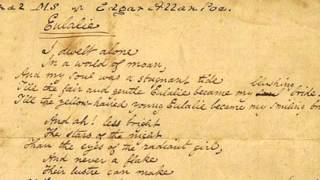 M.S. of Edgar Allan Poe.
Eulalie
I dwelt alone
In a world of moan,
And my soul was a stagnant tide
blushing
Till the fair and gentle Eulalie became my bride,
Till the yellow-haired young Eulalie became my smiling
And ah! less bright
The stars of the night
Than the eyes of the radiant girl,
And never a flake
Their lustre can make